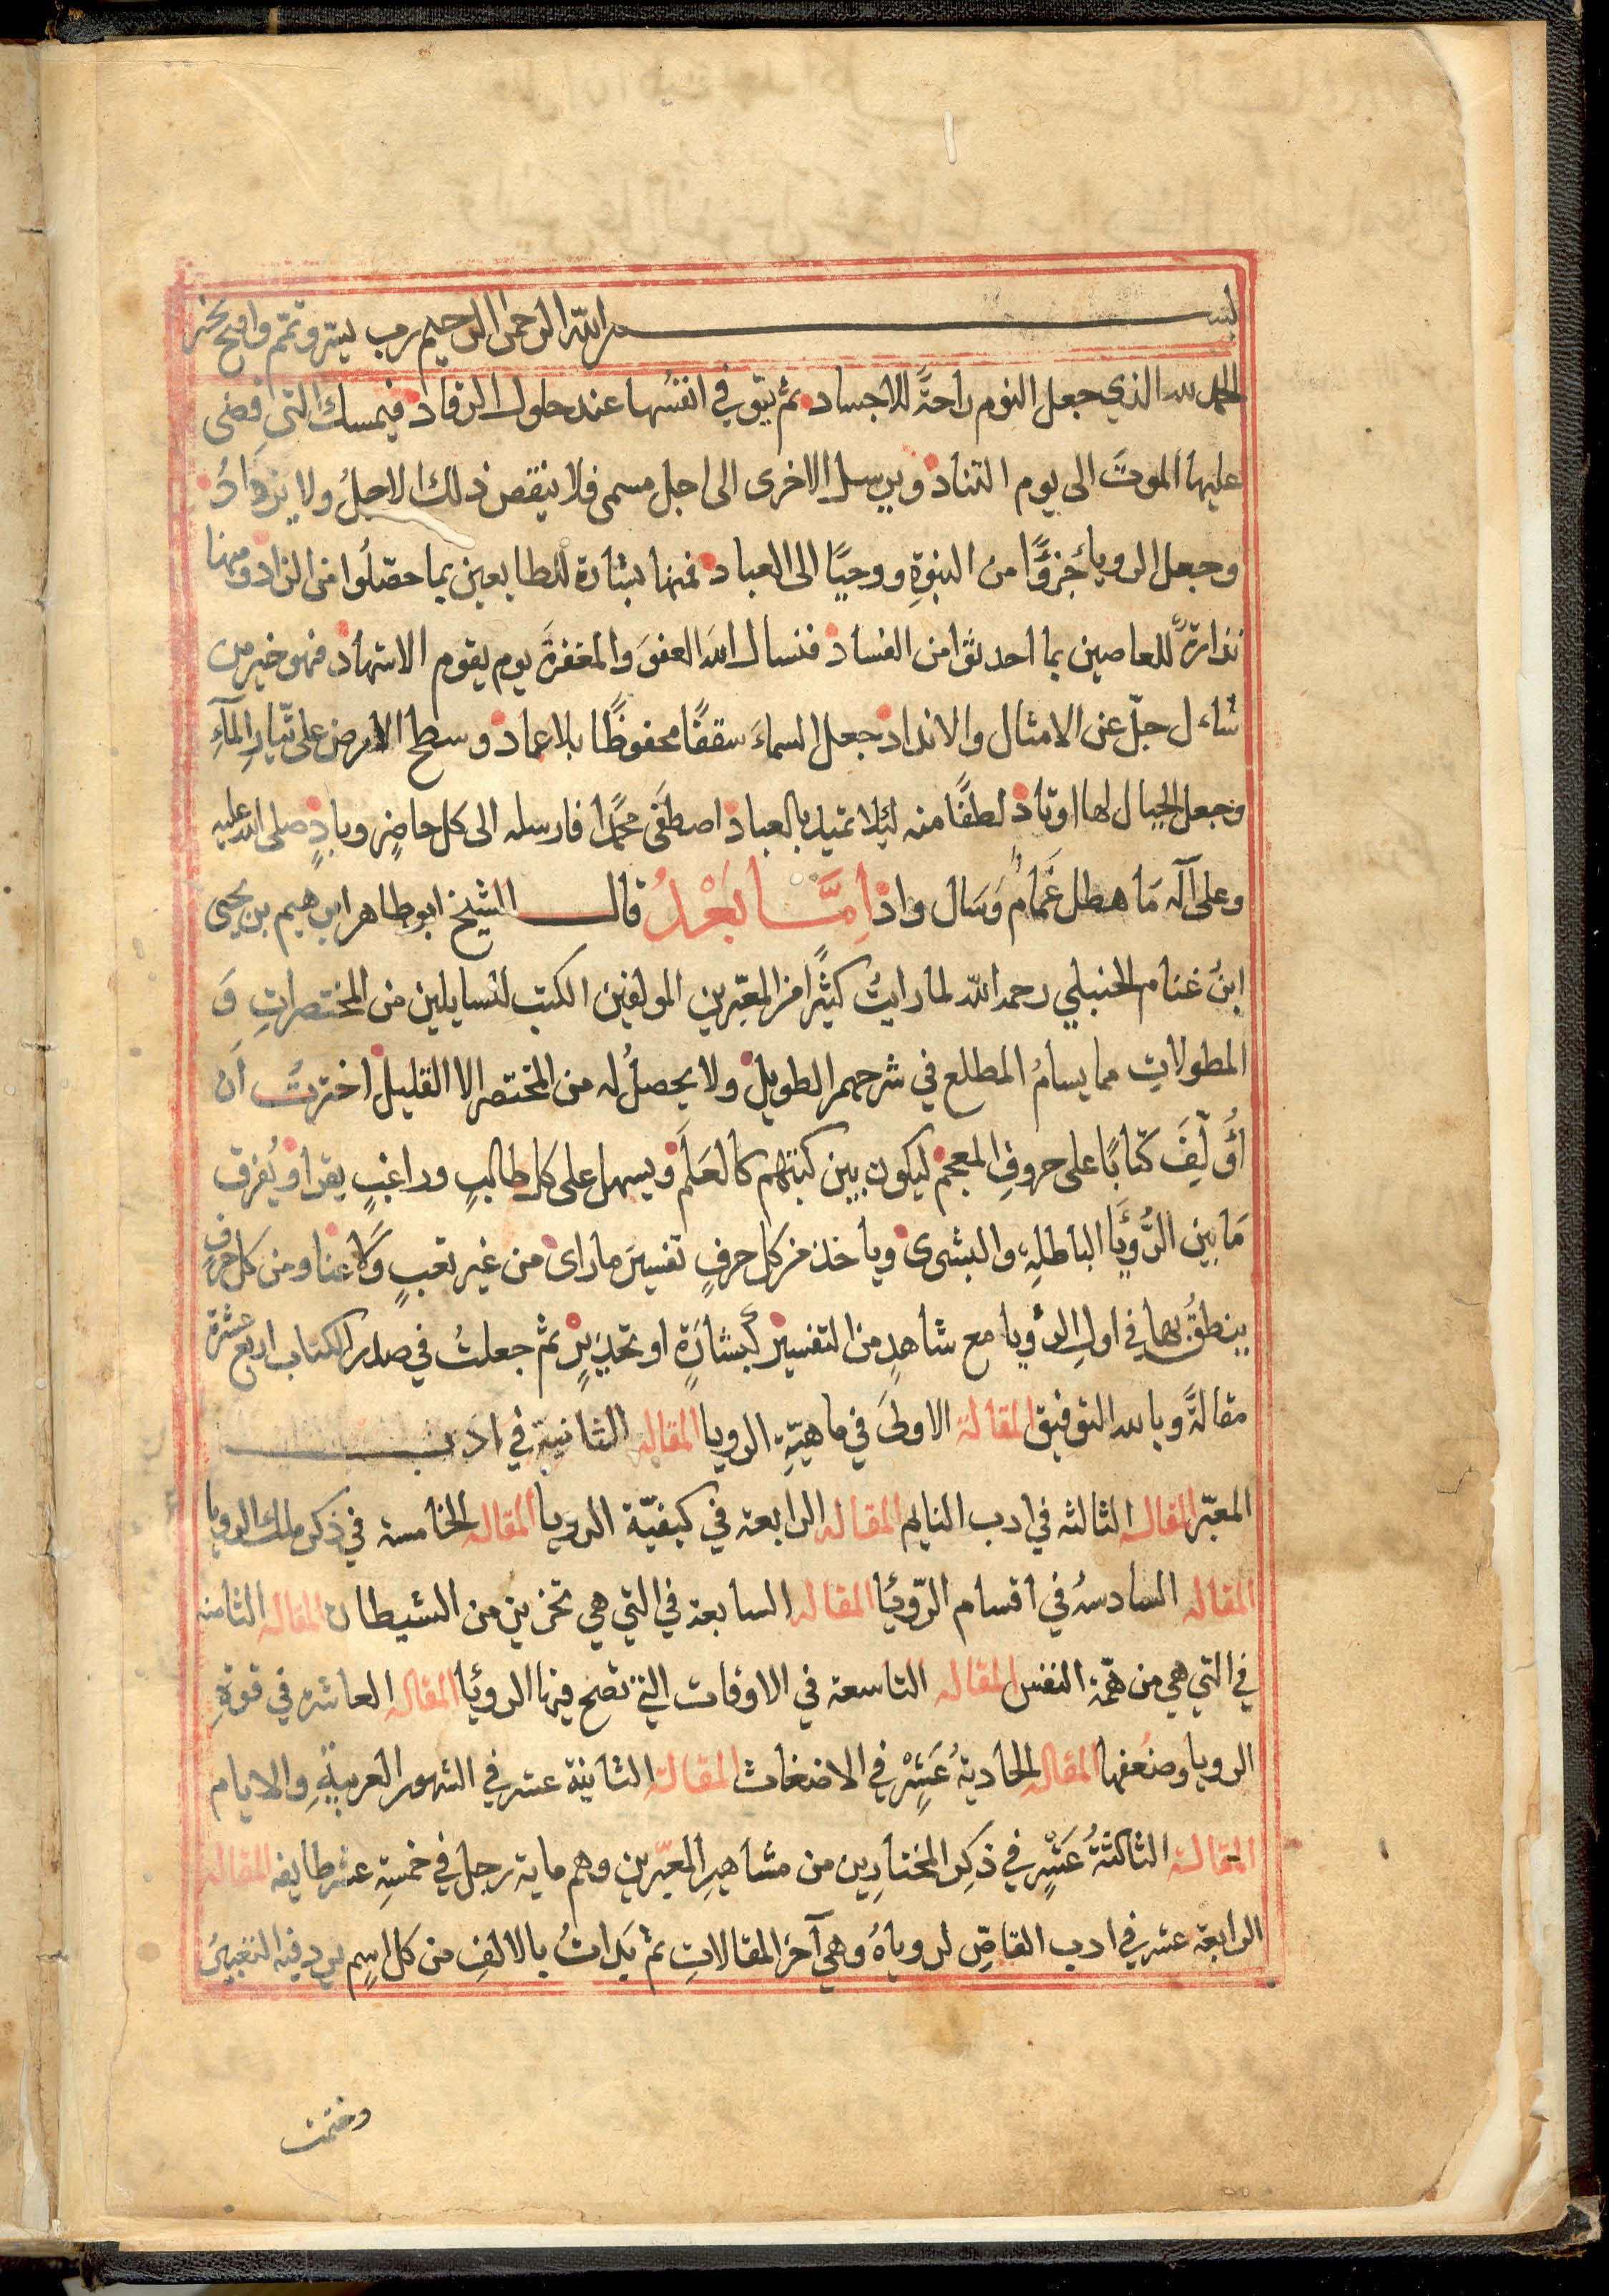 بسم الله الرحمن الرحيم رب يسر وتمم وافتح بخير
الحمد لله الذي جعل النوم راحةً للاجساد ثم يتوفي انفسُها عند حلول الرقاد فيمسك التي قضى
عليها الموتَ الى يوم التناد ويرسل الاخرى الى اجل مسمى فلا ينقص ذلك الاجلُ ولا يزدادُ
وجعل الرويا جزؤًا من النبوةِ ووحيًا الى العباد فمنها بشارة للطايعين بما حصّلُوا من الزاد ومنها
نذارةً للعاصين بما احدثوا من الفساد فنسال الله العفوَ والمغفرةَ يوم يقوم الاشهاد فهو خير من
سُاءل جلّ عن الامثال والانداد جعل السماءَ سقفًا محفوظًا بلا عماد وسطح الارض على تيّارِ المآءِ
وجعل الجبال لها اوتاد لطفًا منه ليلا تميد بالعباد اصطفَى محمدًا فارسله الى كل حاضرٍ وبادٍ صلى الله عليه
وعلى آله مَا هطل غَمَامٌ وَسَال واد امَّا بَعْدُ قال الشيخ ابو طاهر ابرهيم بن يحيى
ابنُ غنام الحنبلي رحمه الله لما رايتُ كثيرًا من المعبّرين المولفين الكتب للسايلين من المختصراتِ وَ
المطولاتِ مما يسامُ المطلع في شرحهم الطويل ولا يحصلُ له من المختصر الا القليل اخترتُ اَن
أُؤلّفَ كتابًا على حروفِ المعجم ليكون بين كتبهم كالعَلَم ويسهل على كل طالبٍ وراغبٍ يقرا ويُفرق
مَا بين الرُّؤيَا الباطلةِ والبشرى وياخذ من كل حرفٍ تفسيرَ ما راى من غير تعبٍ وَلا عنا ومن كل حرفٍ
ينطقُ بها في اولِ الرؤيا مع شاهدٍ من التفسير كَبشارَةٍ او تحذيرٍ ثم جعلتُ في صدر الكتاب اربع عشرة
مقالةً وبالله التوفيق المقالة الاولىَ في ماهيّةِ الرويا المقاله الثانية في ادب
المعبّر المقاله الثالثه في ادب النايم المقاله الرابعه في كيفيّة الرويا المقاله الخامسه في ذكر ملك الرويا
المقاله السادسهُ في اقسام الرّويُا المقاله السابعة في التي هي تحزين من الشيطان المقاله الثامنه
في التي هي من همّة النفس المقاله التاسعة في الاوقات التي تصح فيها الرويُا المقاله العاشره في قوةِ
الرويا وضُعفها المقاله الحاديةُ عَشِرْ في الاضغاث المقالة الثانية عشر في الشهور العربيةِ والايام
المقالة الثالثةُ عَشْرِ في ذكِر المختارِين من مشاهيرِ المعبّرين وهم ماية رجل في خمسةِ عشر طايفه المقاله
الرابعة عشر في ادب القاصّ لروياهُ وهي آخر المقالاتِ ثم بَدات بالالفِ من كل اسِم يرد فيه التعبيرُ
وختمت